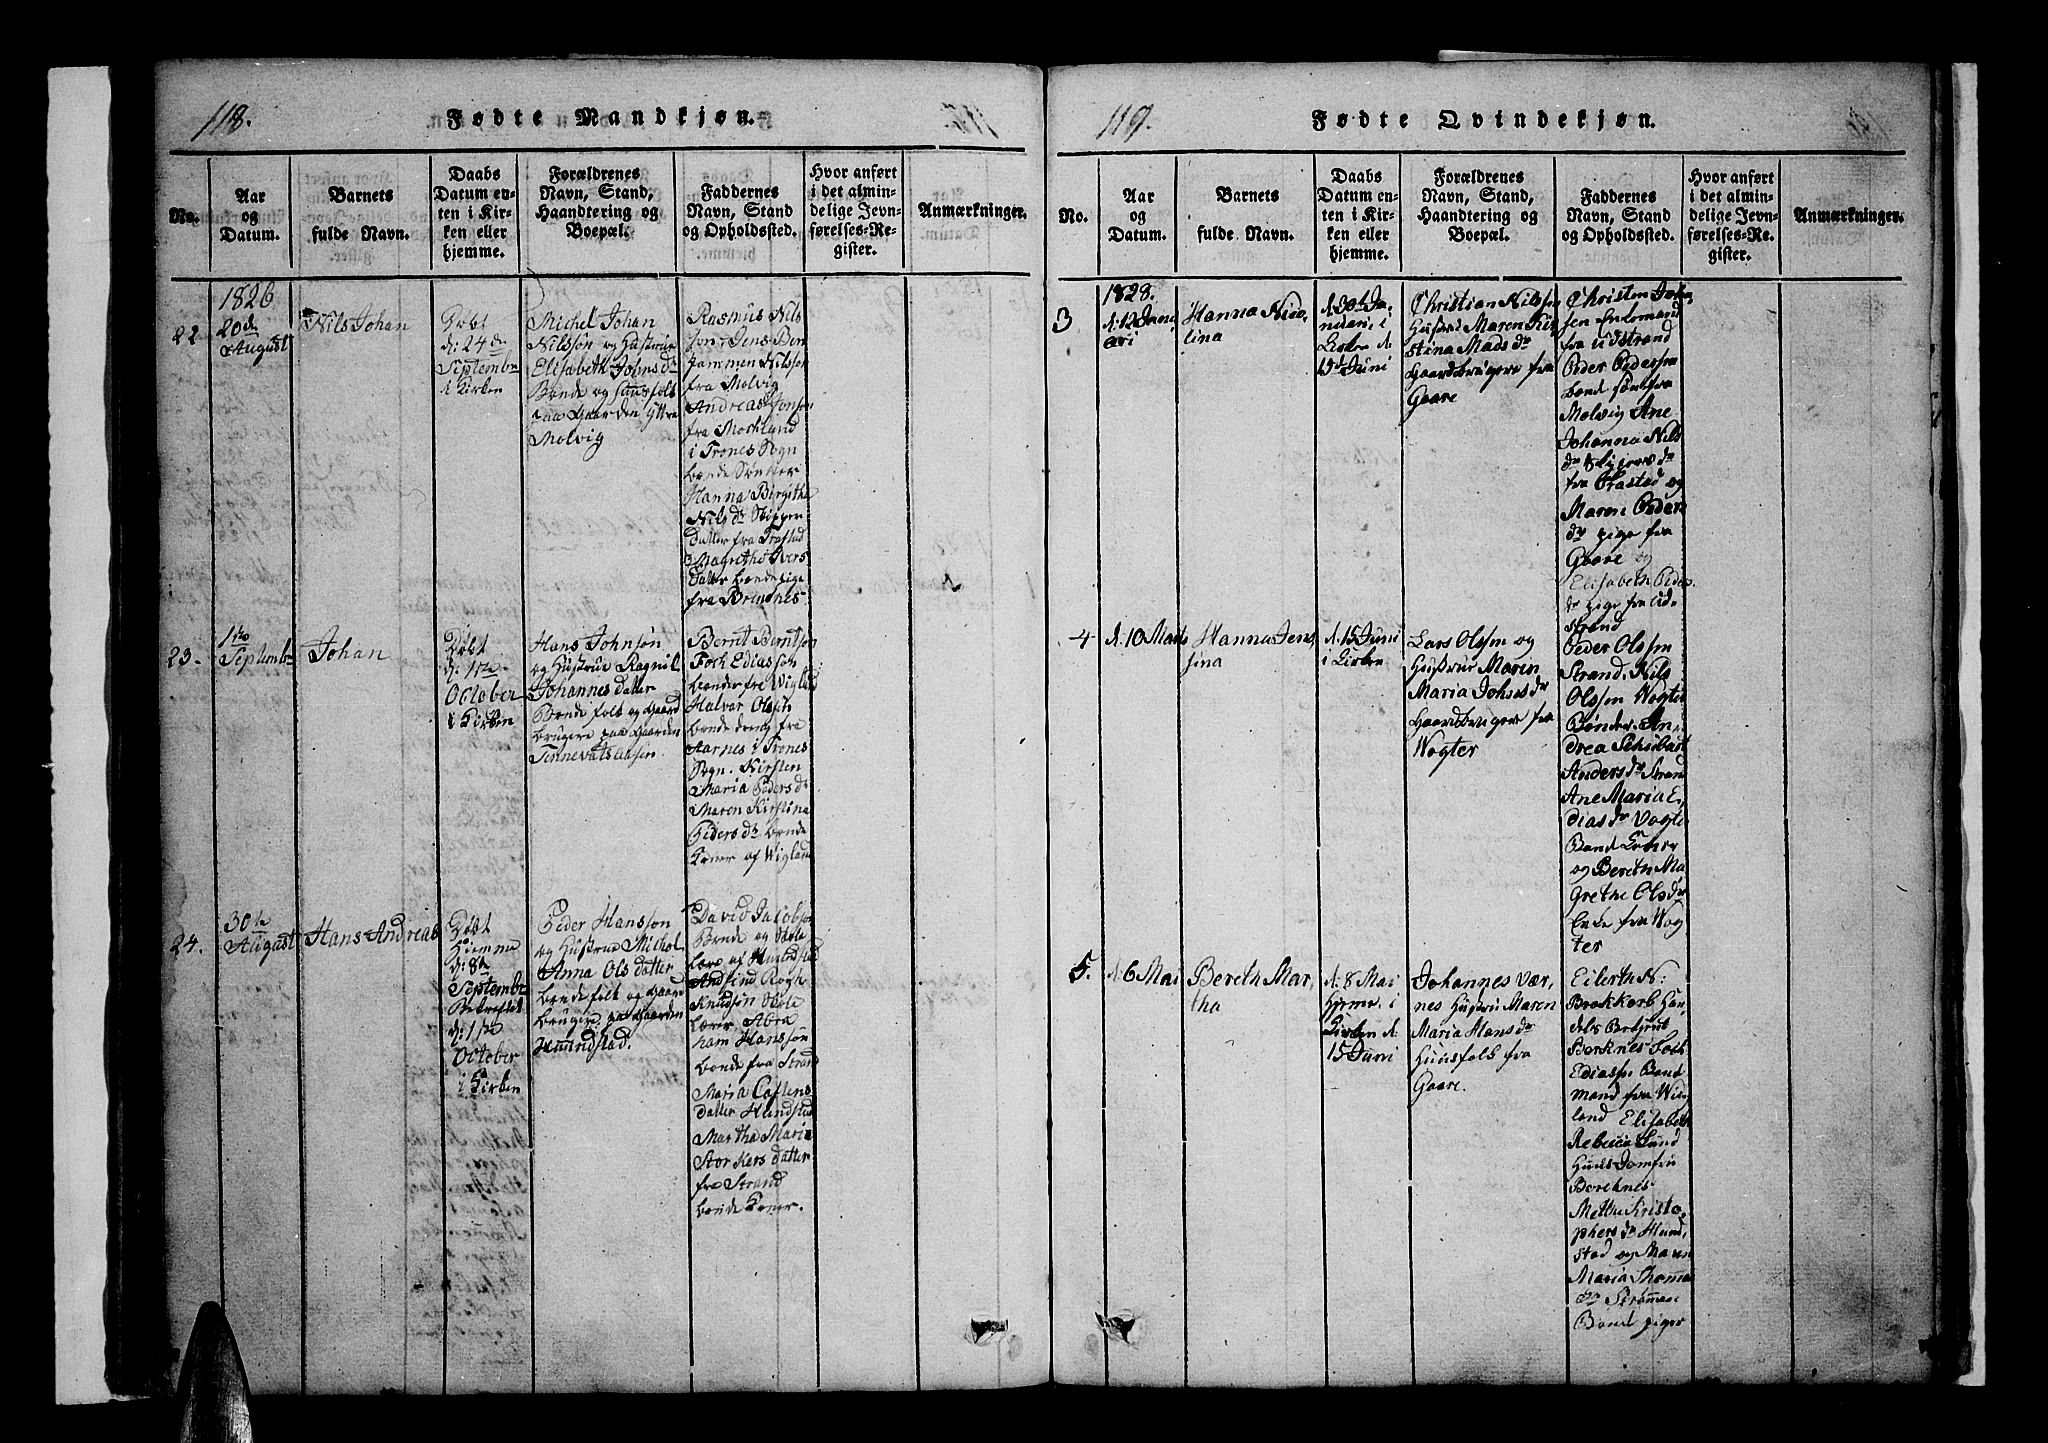 118.
Fødte Mandkjøn.
No.
Aar
og
Datum.
Barnets
fulde Navn.
Daabs
Datum en-
ten i Kir-
ken eller
hjemme.
Forældrenes
Navn, Stand,
Haandtering og
Boepæl.
Faddernes
Navn, Stand
og Opholdssted.
Hvor anført
i det almin-
delige Jevn-
førelses-Re-
gister.
Anmærkninger.
22
1826
20de
August
Nils Johan
Døbt
d: 24de
Septembr
i Kirken
Michel Johan
Nilssøn og Hustrue
Elisabeth Johnsdr
Bonde og Huusfolk
paa Gaarden Yttre
Molvig
Rasmus Nils
søn, Jens Ben
jammen Nilssøn
fra Molvig
Andreas Jonsøn
fra Mocklund
i Trones Sogn
bonde Sønner
Hanna Birgithe
Nilsdr Skipper
datter fra Trastad
Magrethe Ivers
datter bonde pige
fra Breines
23.
1ste
Septembr
Johan
Døbt
d: 1ste
October
i Kirken
Hans Johnsøn
og Hustrue Ragnil
Johannes datter
Bonde folk og Gaard
brugere paa Gaarden
Bernt Berntsøn
Foch Ediassøn
bønder fra Wigland
Halvor Olssøn
bonde dreng fra
Aarnes i Trones
Sogn. Kirsten
Maria Pedersdr
Maren Kirstina
Pedersdr bonde
Koner af Wigland
24.
30te
August
Hans Andreas
Døbt
Hiemme
d: 8de
Septembr
d: 1ste
October
i Kirken
Peder Hanssøn
og Hustrue Michol
Anna Ols datter
bonde folk og Gaard
brugere paa Gaarden
Hundstad.
David Jacobsøn
Bonde og Skole
lærer af Hundstad
Knudsøn Skole
lærer, Abra
ham Hanssøn
bonde fra Strand
Maria Caslens
datter Hundstad
Martha Maria
Storkers datter
fra Strand
bonde Koner.
119.
Fødte Qvindekjøn.
No.
Aar
og
Datum.
Barnets
fulde Navn.
Daabs
Datum en-
ten i Kir-
ken eller
hjemme.
Forældrenes
Navn, Stand,
Haandtering og
Boepæl.
Faddernes
Navn, Stand
og Opholdssted.
Hvor anført
i det almin-
delige Jevn-
førelses-Re-
gister.
Anmærkninger.
3
1828.
d: 12 Janu
ari
Hanna Nico,
lina
d. 30te Ja-
nuari, i
Kirken d.
15de Juni
Christian Nilssen
Hustrue Maren Kir
stina Madsdr
Gaardbrugere fra
Gaare
Christen John
sen
fra Udstrand
Peder Pedersen
bonde søn fra
Molvig Ane
Johanna Nils
dr
fra Trastad og
Maren Peders
dr pige fra
Gaare og
Elisabeth Peders
dr pige fra Ud-
strand
4
d. 10 Marts
Hanna Jen,
sina
d. 15 Juni
i Kirken
Lars Olssen og
Hustrue Maren
Maria Johnsdr
Gaardbrugere fra
Wogter
Peder Olssen
Strand, Nils
Olssen Wogter
Bønder, An,
drea Schubart
Andersdr Strand
Ane Maria E,
diasdr Vogter
Bond Koner
og Bereth Ma
grethe Olsdr
fra Wog
ter
5.
d. 6 Mai
Bereth Mar,
tha
d. 8 Mai
Hjeme, i
Kirken d.
15 Juni
Johannes Vær,
nes Hustrue Maren
Maria Hansdr
Huusfolk fra
Gaare.
Eilerth N:
Brokkorb Han,
dels Betjent
Borknes Foch
Ediassen Bond
mand fra Wig
land Elisabeth
Rebecca Lund
Huus Jomfru
Borcknes
Methe Kristo,
phersdr Hund,
stad og Maren
Maria Thomas
dr Strømen
Bond piger